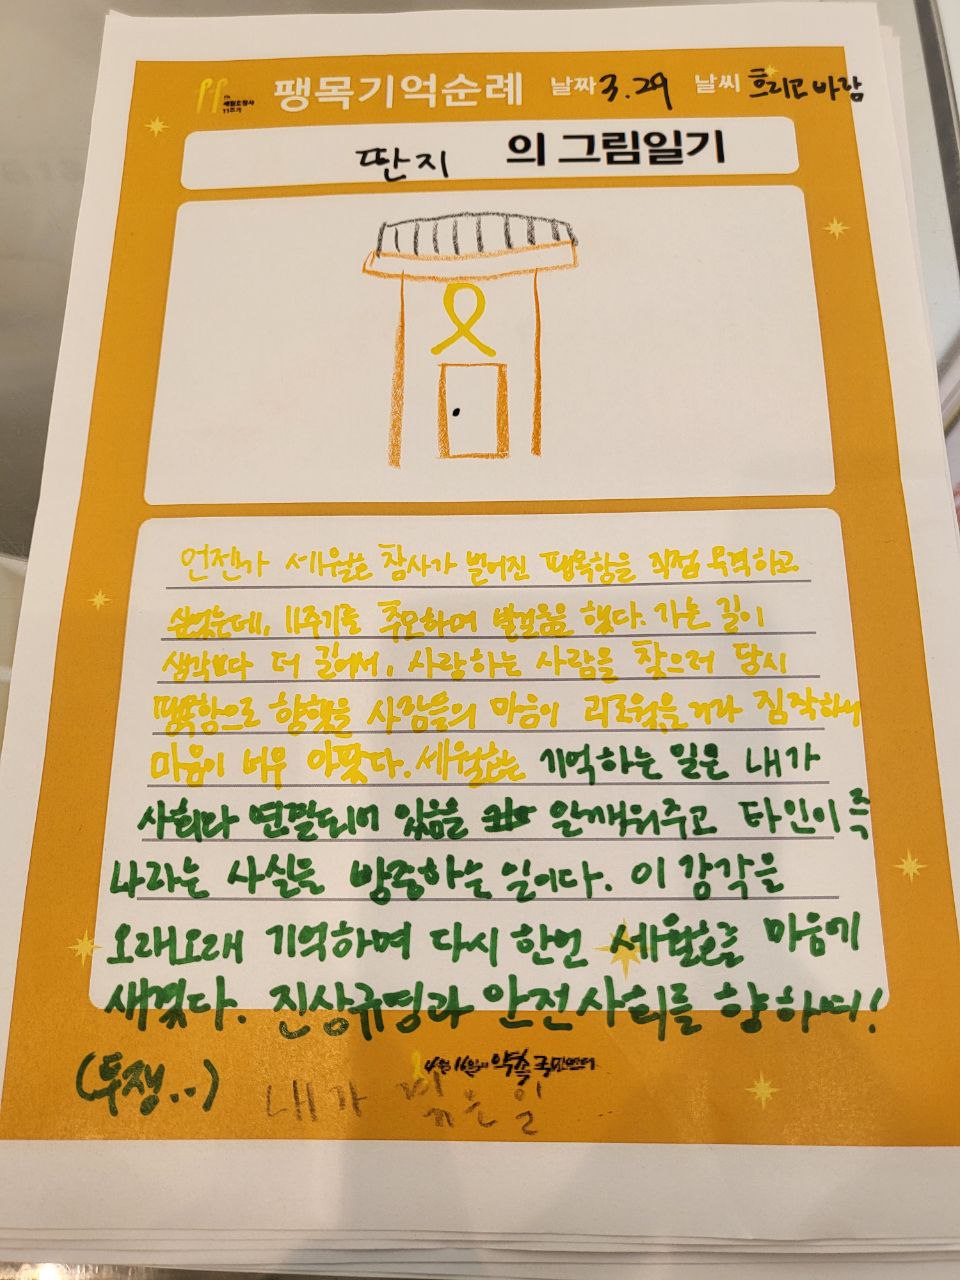 세월호참사
11주기
팽목기억순례 날짜 3.29 날씨 흐리고 바람
딴지 의 그림일기
언젠가 세월호 참사가 벌어진 팽목항을 직접 목격하고
싶었는데, 11주기를 추모하며 발걸음을 했다. 가는 길이
생각보다 더 길어서, 사랑하는 사람을 찾으러 당시
팽목항으로 향했을 사람들의 마음이 괴로웠을 거라 짐작하니
마음이 너무 아팠다. 세월호는 기억하는 일은 내가
사회다 연결되어 있음을 일깨워주고 타인이 즉
나라는 사실을 방증하는 일이다. 이 감각을
오래오래 기억하며 다시 한번 세월호를 마음에
새겼다. 진상규명과 안전사회를 향하여!
(투쟁..)
4월16일의약속국민연대
내가 일